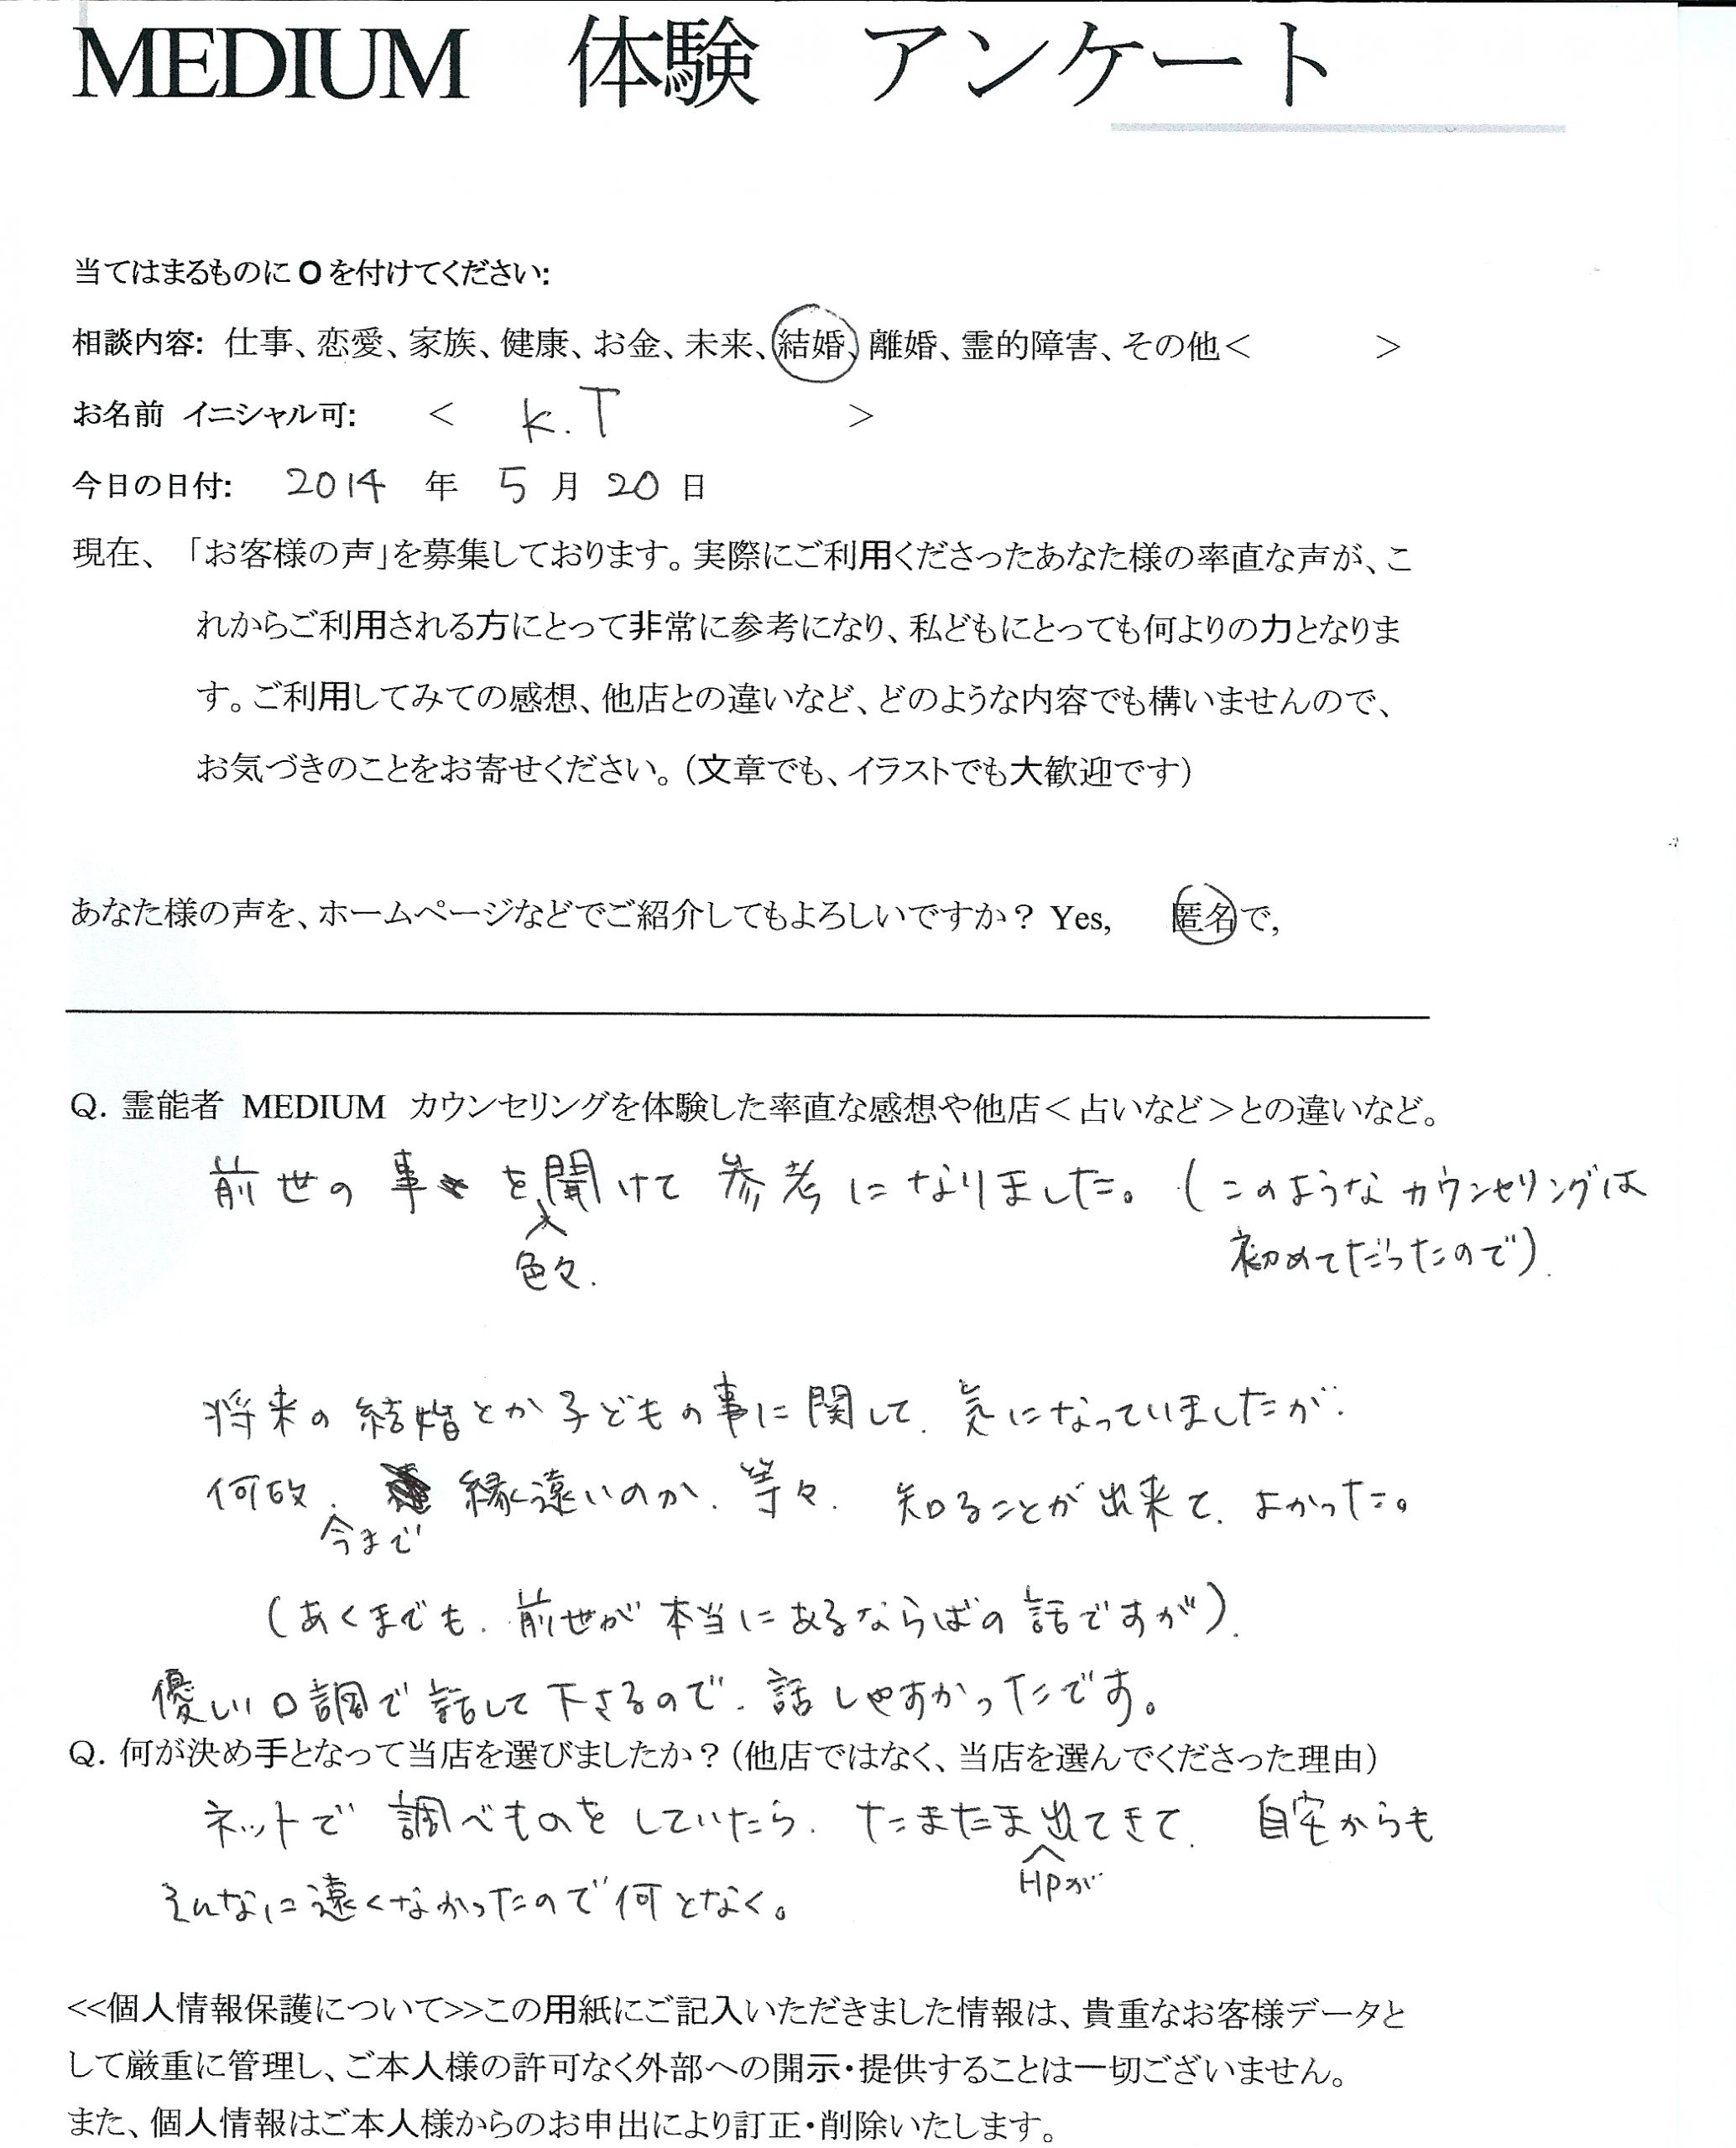 MEDIUM 体験 アンケート
当てはまるものにOを付けてください:
相談内容: 仕事、恋愛、家族、健康、お金、未来、結婚、離婚、霊的障害、その他< >
お名前 イニシャル可: < K.T >
今日の日付: 2014 年 5 月 20 日
現在、「お客様の声」を募集しております。実際にご利用くださったあなた様の率直な声が、こ
れからご利用される方にとって非常に参考になり、私どもにとっても何よりの力となりま
す。ご利用してみての感想、他店との違いなど、どのような内容でも構いませんので、
お気づきのことをお寄せください。(文章でも、イラストでも大歓迎です)
あなた様の声を、ホームページなどでご紹介してもよろしいですか? Yes, 匿名で,
Q. 霊能者 MEDIUM カウンセリングを体験した率直な感想や他店<占いなど>との違いなど。
前世の事を聞けて参考になりました。(このようなカウンセリングは
色々. 初めてだったので).
将来の結婚とか子どもの事に関して、気になっていましたが、
何故、縁遠いのか、等々、知ることが出来て、よかった。
今まで
(あくまでも、前世が本当にあるならばの話ですが).
優しい口調で話して下さるので、話しやすかったです。
Q. 何が決め手となって当店を選びましたか?(他店ではなく、当店を選んでくださった理由)
ネットで調べものをしていたら、たまたま出てきて、自宅からも
HPが
そんなに遠くなかったので何となく。
<<個人情報保護について>>この用紙にご記入いただきました情報は、貴重なお客様データと
して厳重に管理し、ご本人様の許可なく外部への開示・提供することは一切ございません。
また、個人情報はご本人様からのお申出により訂正・削除いたします。